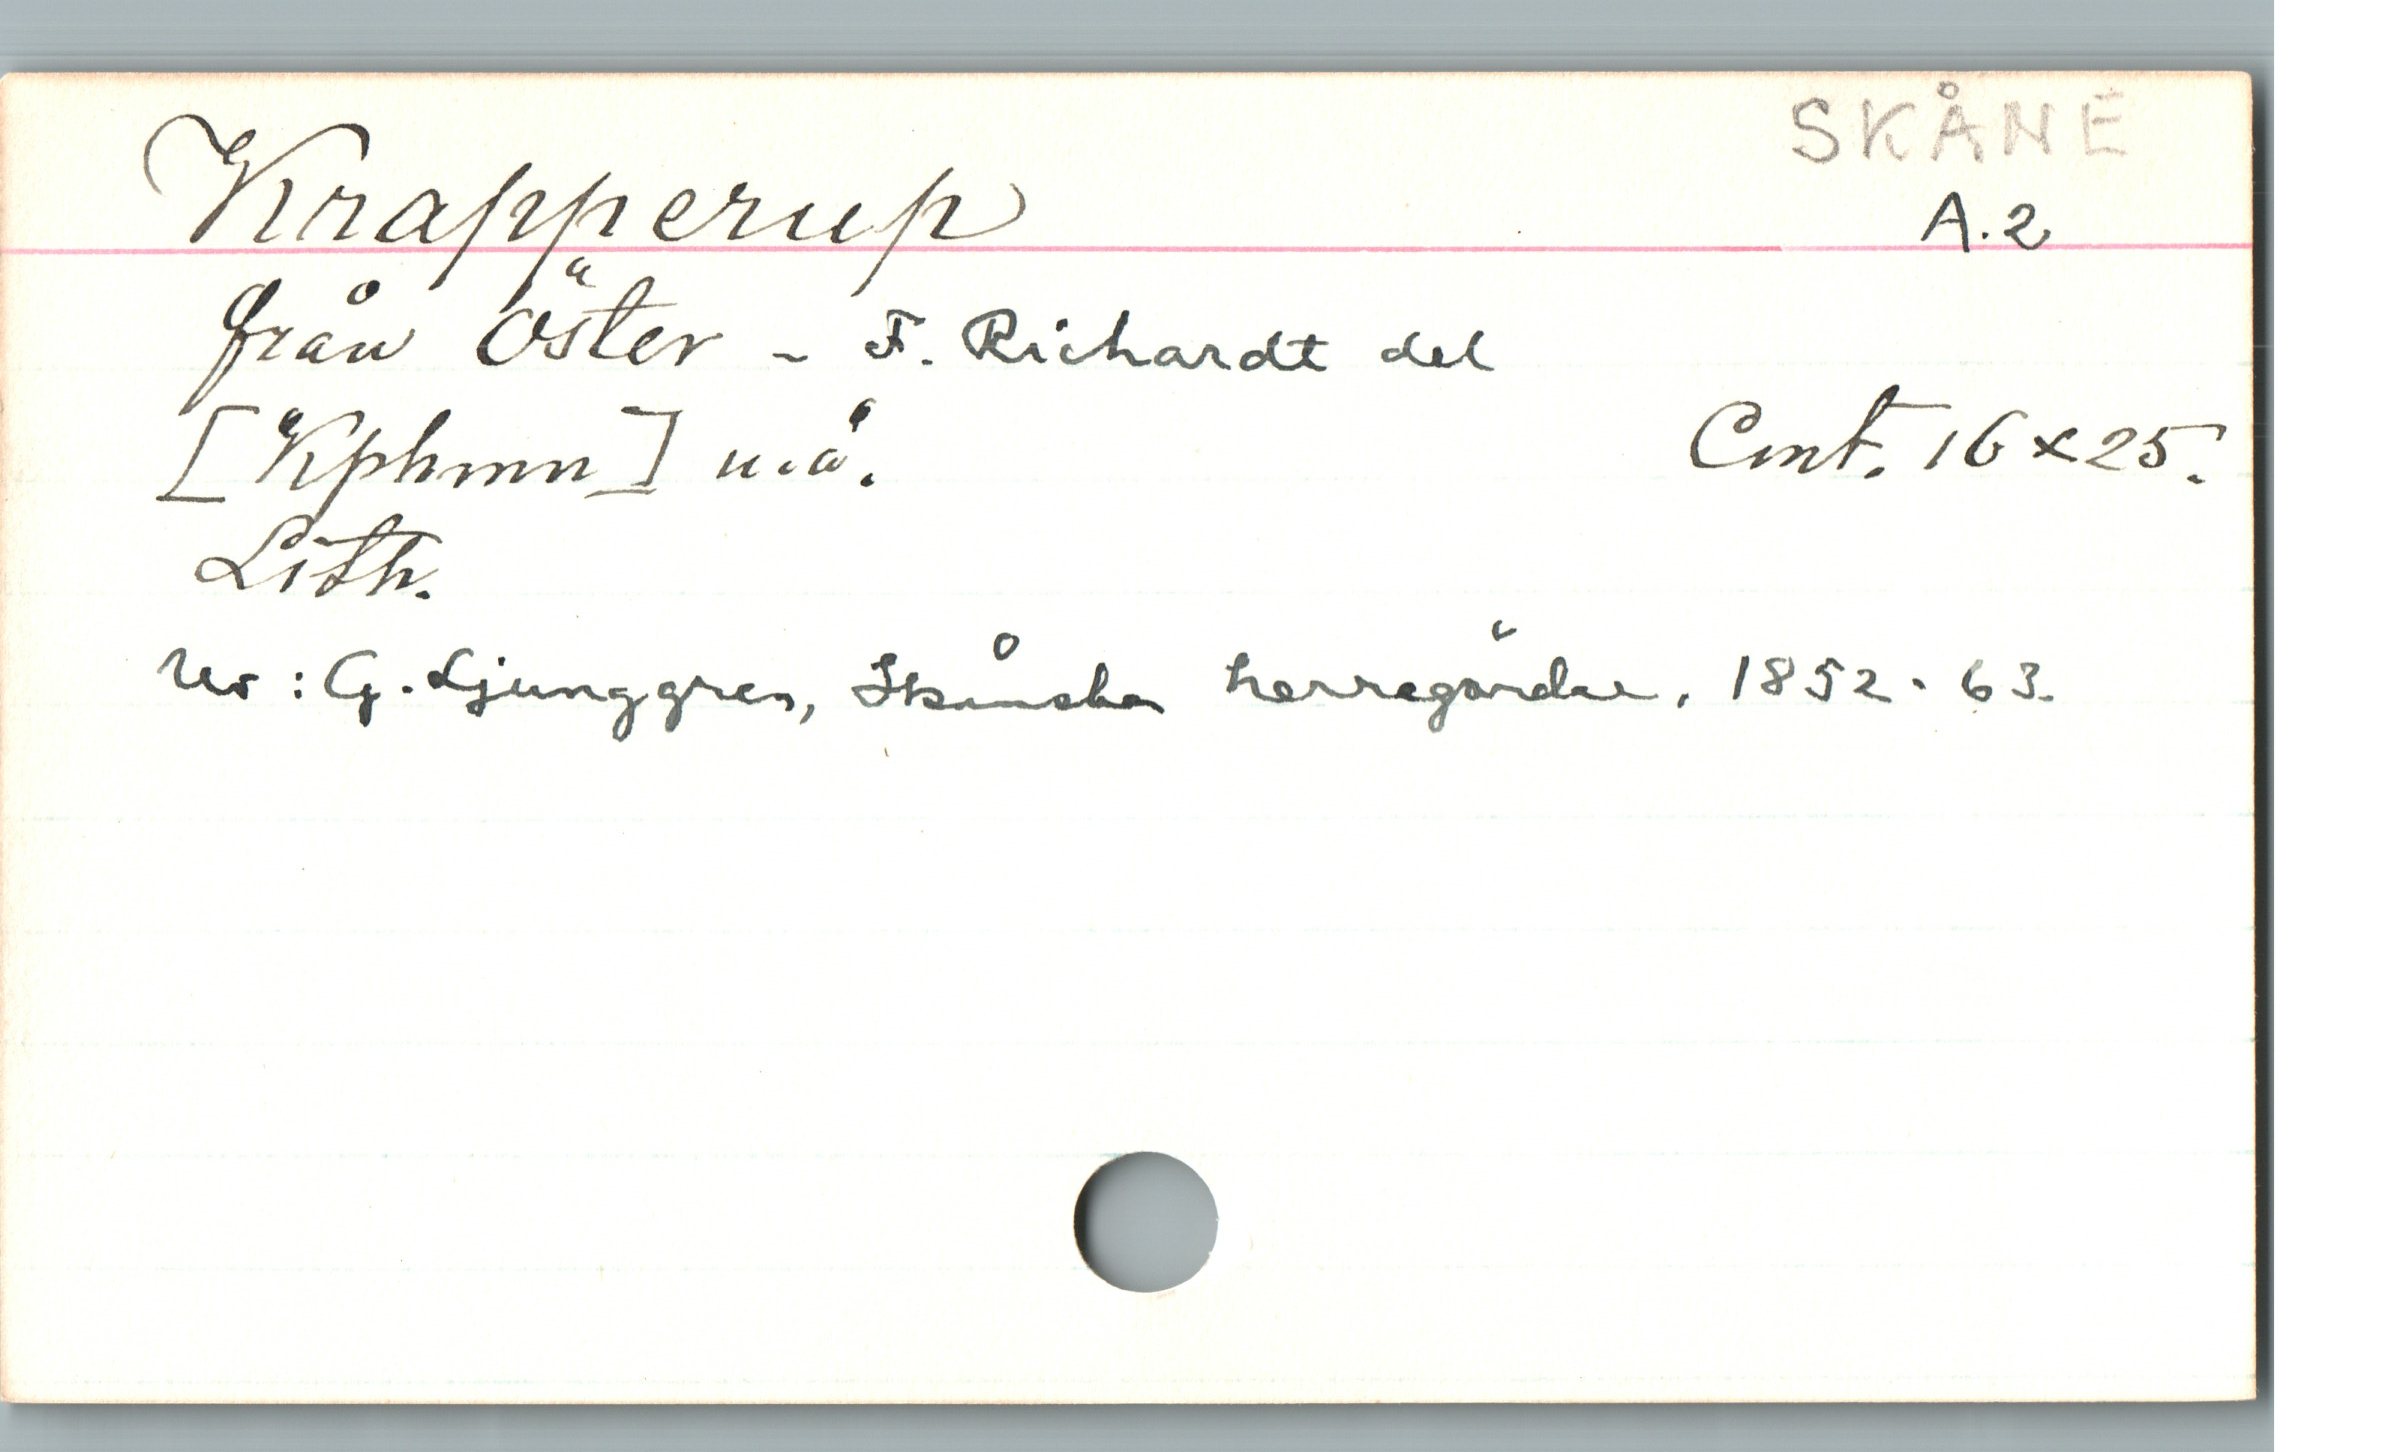 SKÅNE
Krapperup
A.2
från Öster - F. Richardt del
[Kphmn] u.å. Cmt. 16 x 25.
Lith.
Ur: G. Ljunggren, Skånska herregårdar, 1852-63.